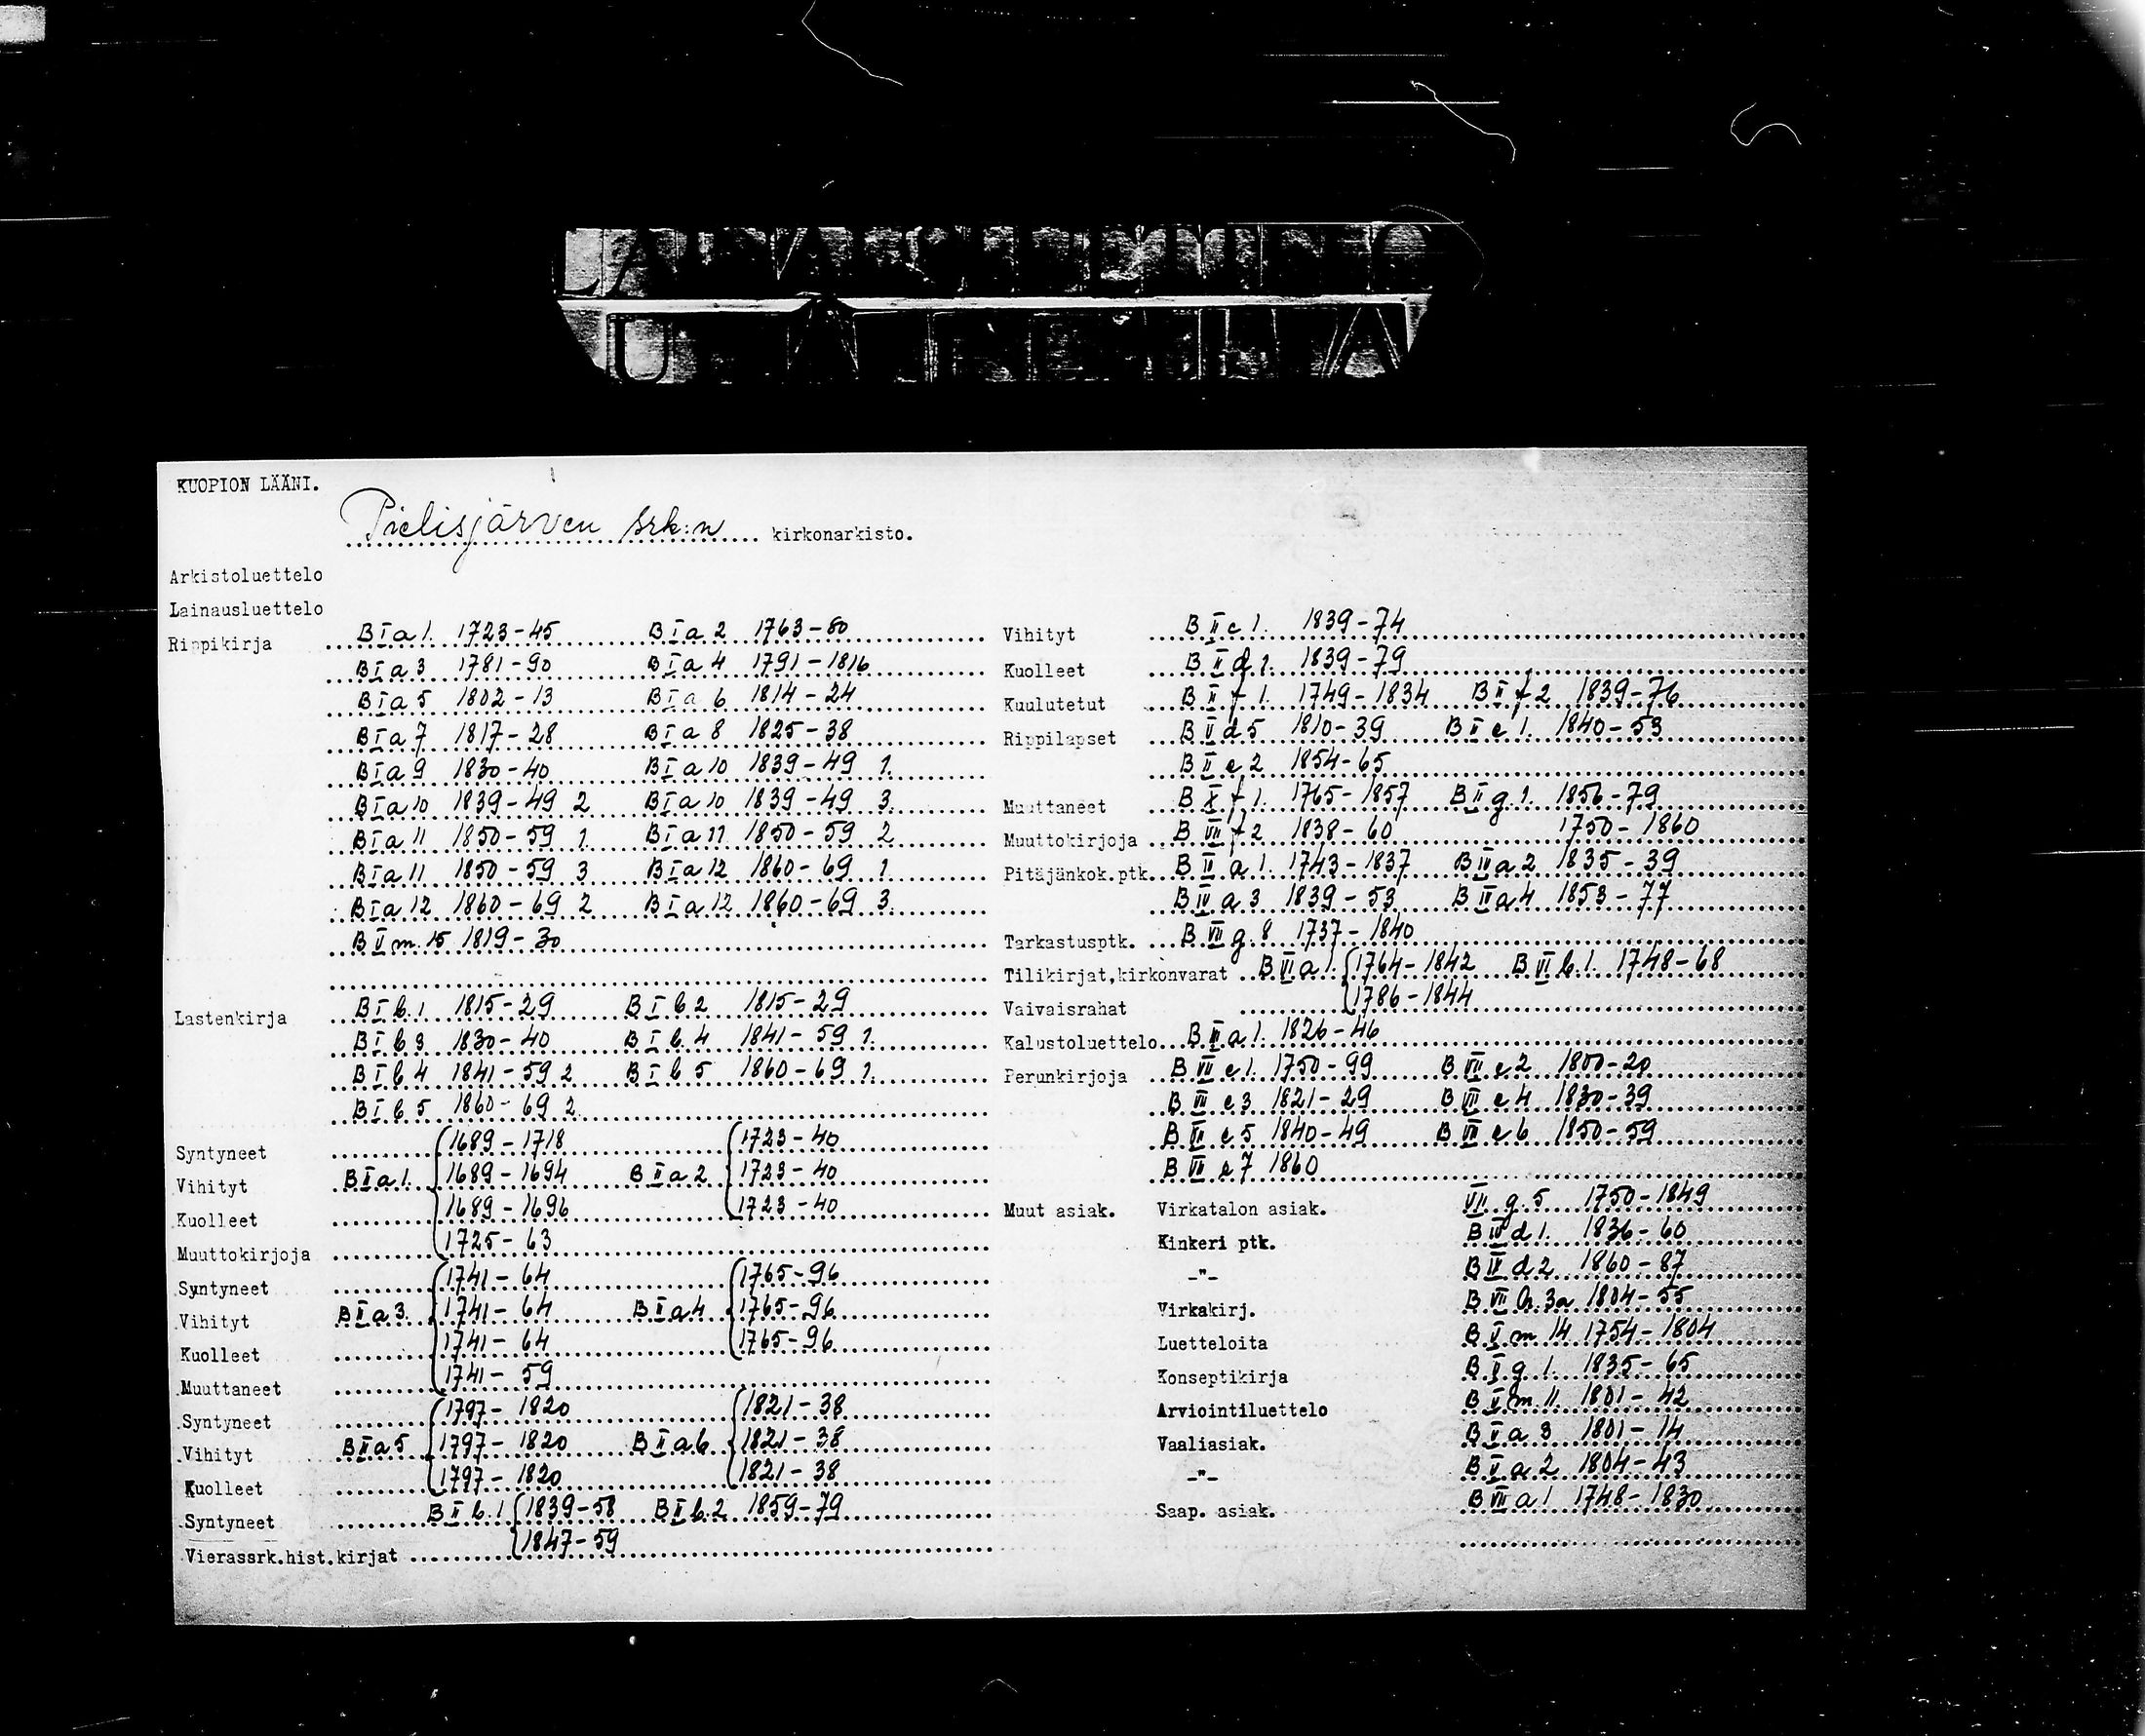 KUOPION LÄÄNI.
Pielisjärven srk:n kirkonarkisto.
Arkistoluettelo
Lainausluettelo
Rippikirja B I a 1. 1723-45 B I a 2 1763-80
B I a 3 1781-90 B I a 4 1791-1816
B I a 5 1802-13 B I a 6 1814-24
B I a 7 1817-28 B I a 8 1825-38
B I a 9 1830-40 B I a 10 1839-49 1.
B I a 10 1839-49 2 B I a 10 1839-49 3.
B I a 11 1850-59 1. B I a 11 1850-59 2
B I a 11 1850-59 3 B I a 12 1860-69 1
B I a 12 1860-69 2 B I a 12 1860-69 3.
B V m. 15 1819-30
Lastenkirja B I b. 1 1815-29 B I b 2 1815-29
B I b 3 1830-40 B I b. 4 1841-59 1.
B I b 4 1841-59 2 B I b 5 1860-69 1.
B I b 5 1860-69 2.
Syntyneet 1689-1718 1723-40
Vihityt B II a 1. 1689-1694 B II a 2 1723-40
Kuolleet 1689-1696 1723-40
Muuttokirjoja 1725-63
Syntyneet 1741-64 1765-96
Vihityt B II a 3. 1741-64 B II a 4. 1765-96
Kuolleet 1741-64 1765-96
Muuttaneet 1741-59
Syntyneet 1797-1820 1821-38
Vihityt B II a 5 1797-1820 B II a 6. 1821-38
Kuolleet 1797-1820 1821-38
Syntyneet B II b. 1 1839-58 B II b. 2 1859-79
Vierassrk.hist.kirjat 1847-59
Vihityt B II c 1. 1839-74
Kuolleet B II d 1. 1839-79
Kuulutetut B II f 1. 1749-1834 B II f 2 1839-76
Rippilapset B V d 5 1810-39 B II e 1. 1840-53
B II e 2 1854-65
Muuttaneet B f 1. 1765-1857 B II g. 1. 1856-79
Muuttokirjoja B VII f 2 1838-60 1750-1860
Pitäjänkok.ptk. B a 1. 1743-1837 B a 2 1835-39
B IV a 3 1839-53 B a 4 1853-77
Tarkastusptk. B VII g. 8 1737-1840
Tilikirjat,kirkonvarat B VI a 1. 1764-1842 B VI b. 1. 1748-68
Vaivaisrahat 1786-1844
Kalustoluettelo B III a 1. 1826-46
Perunkirjoja B VII e 1. 1750-99 B VII e 2 1800-20
B VII e 3 1821-29 B VII e 4 1830-39
B VII e 5 1840-49 B VII e 6 1850-59
B VII e 7 1860
Muut asiak. Virkatalon asiak. VII g. 5 1750-1849
Kinkeri ptk. B IV d 1. 1836-60
-"- B IV d 2 1860-87
Virkakirj. B VII h. 3a 1804-55
Luetteloita B V m 14 1754-1804
Konseptikirja B V g. 1. 1835-65
Arviointiluettelo B V m. 11. 1801-42
Vaaliasiak. B V a 3 1801-14
-"- B V a 2 1804-43
Saap. asiak. B VII a 1 1748-1830